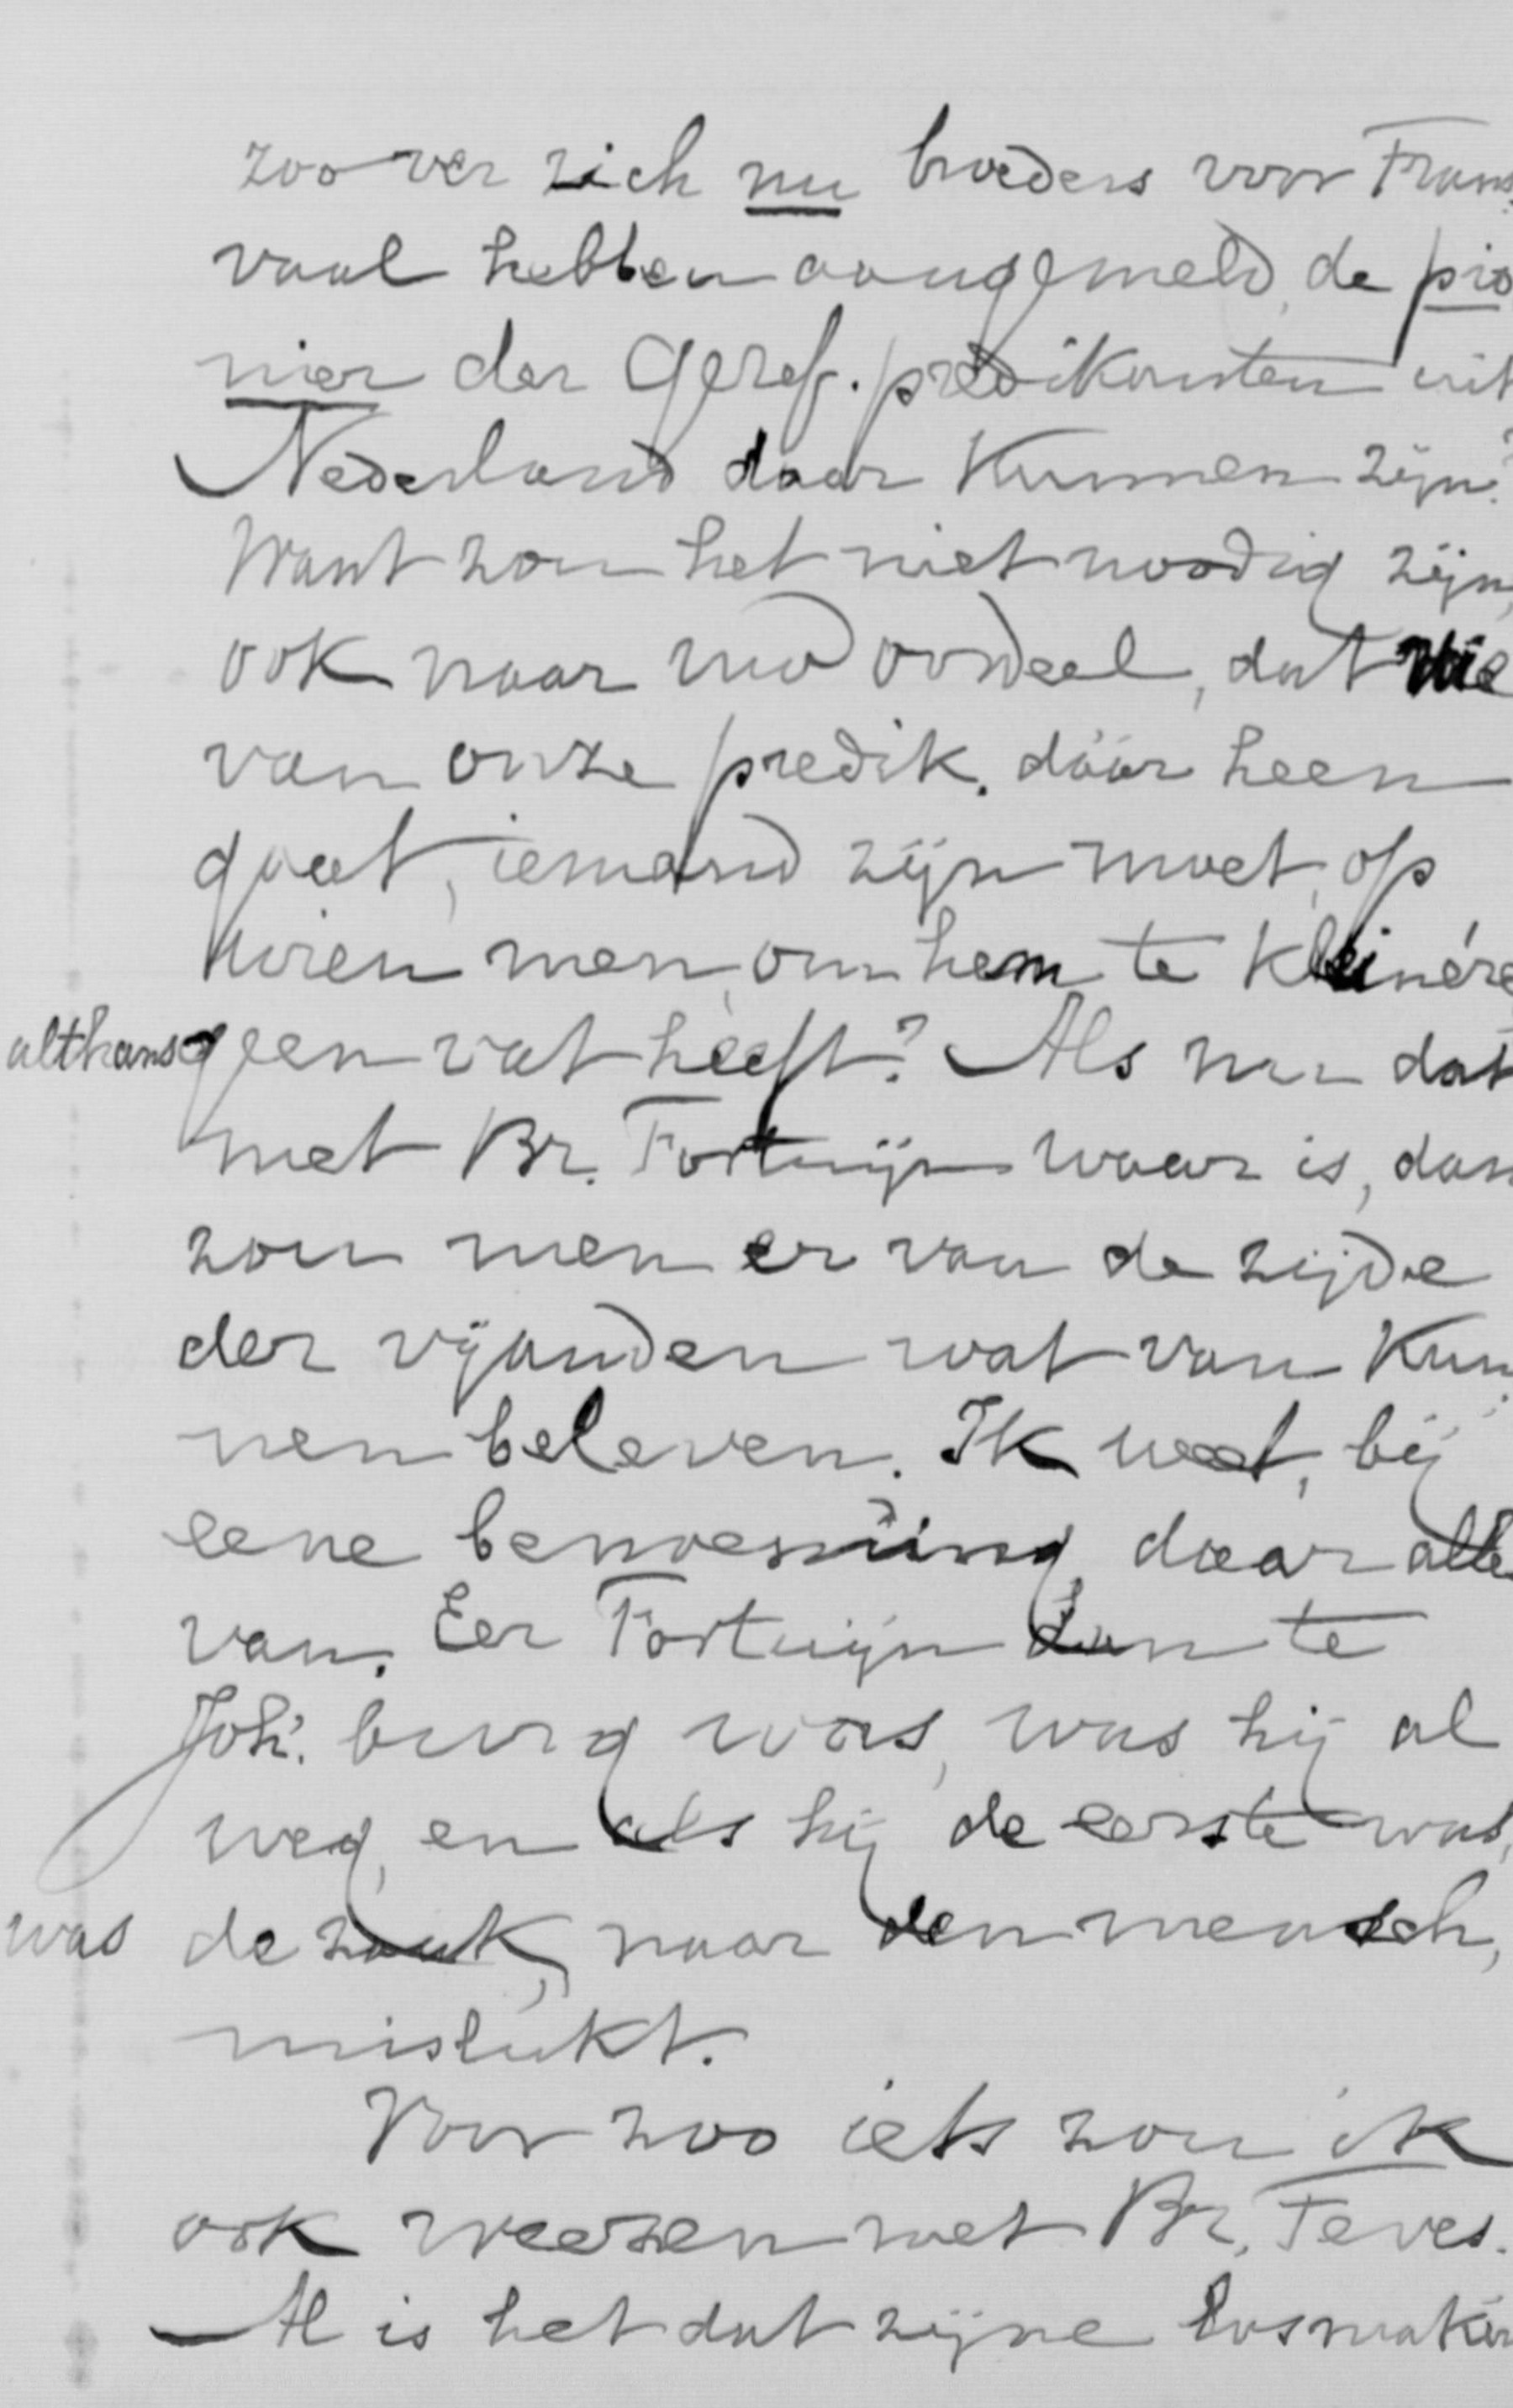 zoover zich nu broeders voor Trans
vaal hebben aangemeld, de pio
nier der Geref. predikanten uit
Nederland daar Kunnen zijn?
Want zou het niet noodig zijn,
ook naar uw oordeel, dat wie
van onze predik. dáár heen
gaat, iemand zijn moet, op
wien men, om hem te kleinére
althans geen vat heeft? Als nu dat
met Br. Fortuijn waar is, dan
zou men er van de zijde
der vijanden wat van Kun
nen beleven. Ik weet, bij
eene benoeming daar alle
van. Eer Fortuijn dan te
Joh. burg was, was hij al
weg, en als hij de eerste was,
was de zaak, naar den mensch,
mislukt.
Voor zoo iets zou ik
ook vreezen met Br. Feves.
Al is het dat zijne losmakin